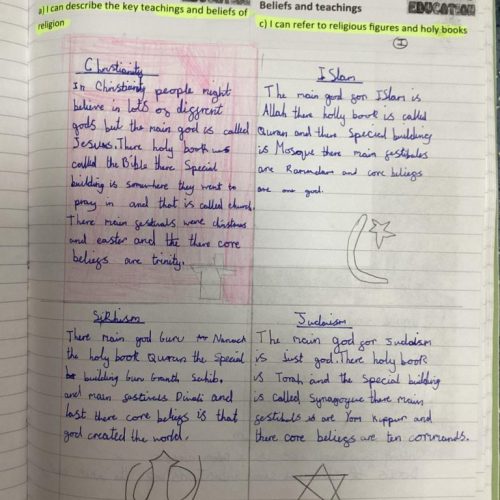 a) I can describe the key teachings and beliefs of
religion
Beliefs and teachings
EDUCATION
c) I can refer to religious figures and holy books
Christianity
In Christianity people might
believe in lots of different
gods but the main god is called
Jesus. There holy book is
called the Bible there Special
building is somewhere they went to
pray in and that is called church.
There main festivals were christmas
and easter and the there core
beliefs are trinity.
ISlam
The main god for ISlam is
Allah there holly book is called
Quran and there special building
is Mosque there main festibales
are Rammdam and core beliefs
are one god.
Sikhism
There main god Guru Nanack
the holy book Quran the Special
building Guru Granth Sahib.
and main fastivels Diwali and
last there core beliefs is that
god created the world.
Judaism
The main god for Judaism
is Just god. There holy book
is Torah and the special building
is called Synagogue there main
festibals is are Yom Kuppur and
there core beliefs are ten commands.